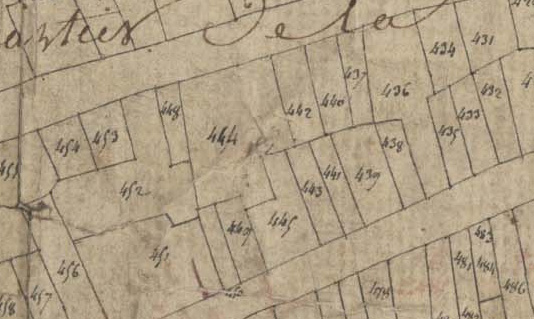 De la
434
431
437
432
436
442
440
433
448
444
435
454
453
438
455
441
439
452
443
445
447
451
456
483
481
484
486
457
458